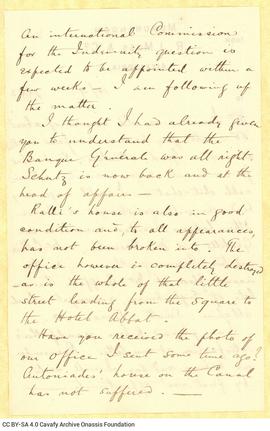 An international Commission
for the Indemnity question is
expected to be appointed within a
few weeks — I am following up
the matter.
I thought I had already given
you to understand that the
Banque Générale was all right.
Schutz is now back and at the
head of affairs —
Ralli's house is also in good
condition and, to all appearances,
has not been broken into. The
office however is completely destroyed
as is the whole of that little
street leading from the Square to
the Hotel Abbat.
Have you received the photo of
our Office I sent some time ago?
Antoniades' house on the Canal
has not suffered. —
CC BY-SA 4.0 Cavafy Archive Onassis Foundation